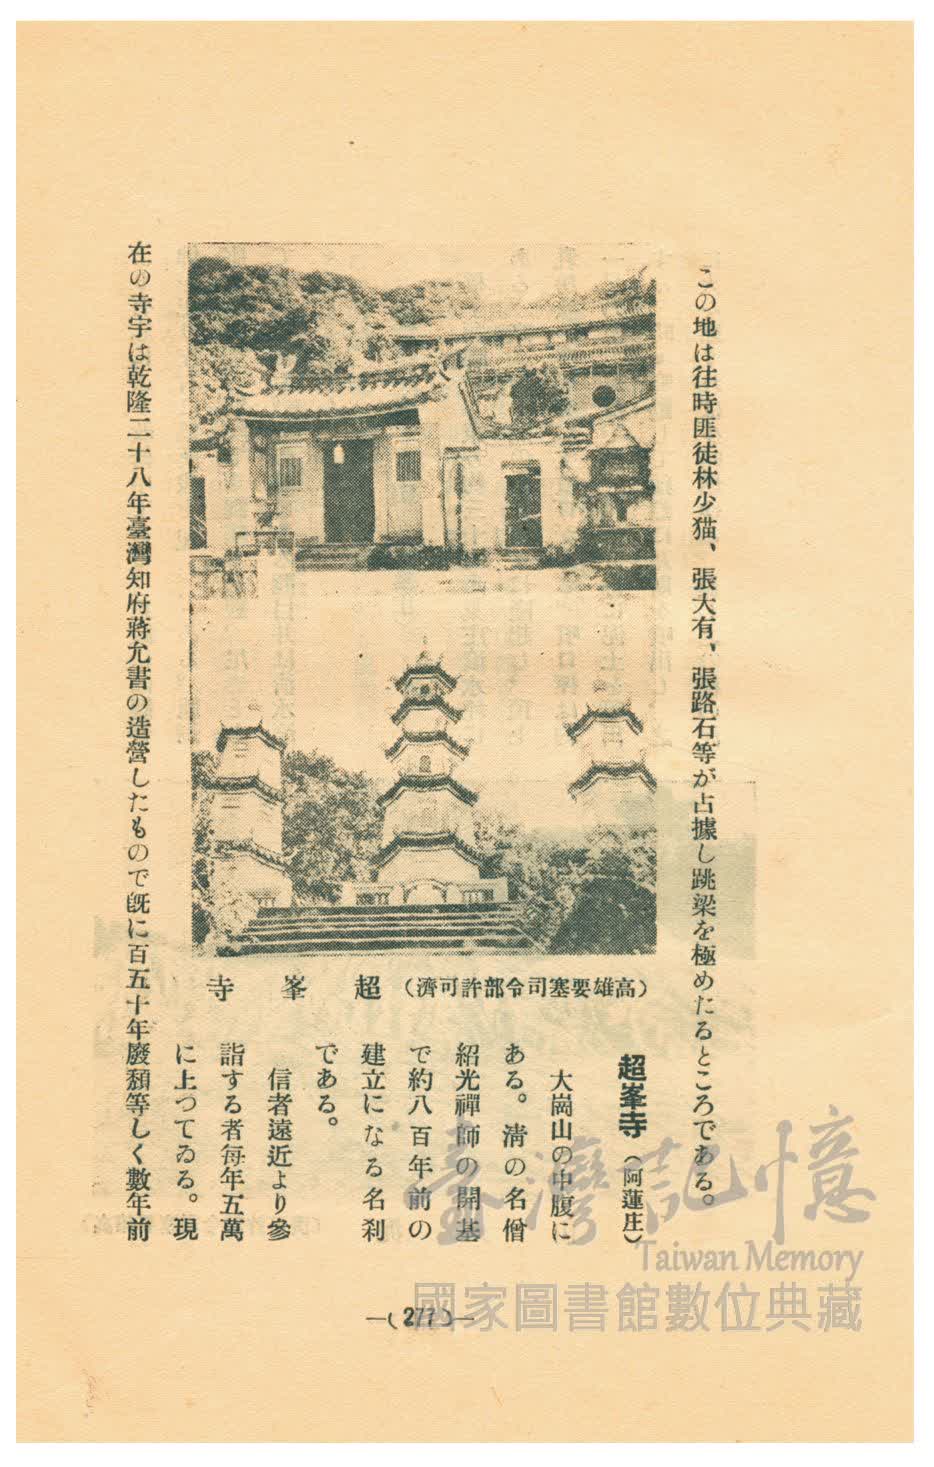 この地は往時匪徒林少猫、張大有、張路石等が占據し跳梁を極めたるところである。
超峯寺（阿蓮庄）
大崗山の中腹に
ある。淸の名僧
紹光禪師の開基
で約八百年前の
建立になる名刹
である。
信者遠近より參
詣する者每年五萬
に上つてゐる。現
在の寺宇は乾隆二十八年臺灣知府蔣允書の造營したもので既に百五十年廢頽等しく數年前
超峯寺（高雄要塞司令部許可濟）
—(277)—
臺灣記憶
Taiwan Memory
國家圖書館數位典藏